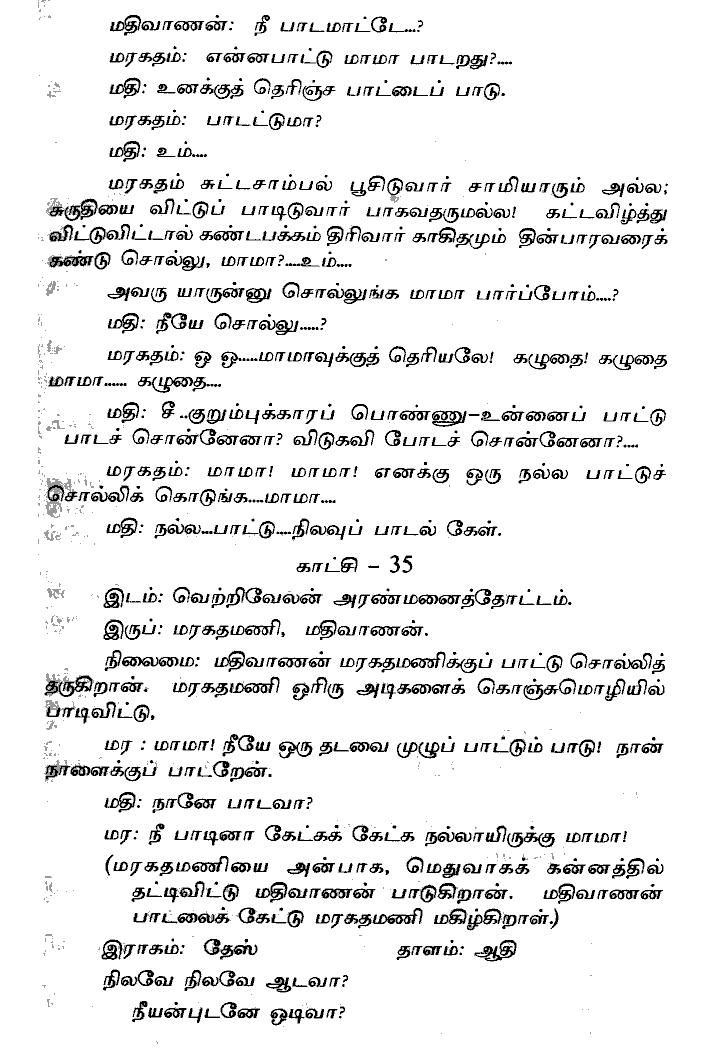 மதிவாணன்: நீ பாடமாட்டே...?
மரகதம்: என்னபாட்டு மாமா பாடறது?....
மதி: உனக்குத் தெரிஞ்ச பாட்டைப் பாடு.
மரகதம்: பாடட்டுமா?
மதி: உம்....
மரகதம் சுட்டசாம்பல் பூசிடுவார் சாமியாரும் அல்ல;
சுருதியை விட்டுப் பாடிடுவார் பாகவதருமல்ல! கட்டவிழ்த்து
விட்டுவிட்டால் கண்டபக்கம் திரிவார் காகிதமும் தின்பாரவரைக்
கண்டு சொல்லு, மாமா?....உம்....
அவரு யாருன்னு சொல்லுங்க மாமா பார்ப்போம்....?
மதி: நீயே சொல்லு.....?
மரகதம்: ஓ ஓ.....மாமாவுக்குத் தெரியலே! கழுதை! கழுதை
மாமா...... கழுதை....
மதி: சீ ..குறும்புக்காரப் பொண்ணு-உன்னைப் பாட்டு
பாடச் சொன்னேனா? விடுகவி போடச் சொன்னேனா?....
மரகதம்: மாமா! மாமா! எனக்கு ஒரு நல்ல பாட்டுச்
சொல்லிக் கொடுங்க....மாமா....
மதி: நல்ல...பாட்டு....நிலவுப் பாடல் கேள்.
காட்சி – 35
இடம்: வெற்றிவேலன் அரண்மனைத்தோட்டம்.
இருப்: மரகதமணி, மதிவாணன்.
நிலைமை: மதிவாணன் மரகதமணிக்குப் பாட்டு சொல்லித்
தருகிறான். மரகதமணி ஒரிரு அடிகளைக் கொஞ்சுமொழியில்
பாடிவிட்டு,
மர : மாமா! நீயே ஒரு தடவை முழுப் பாட்டும் பாடு! நான்
நாளைக்குப் பாட்றேன்.
மதி: நானே பாடவா?
மர: நீ பாடினா கேட்கக் கேட்க நல்லாயிருக்கு மாமா!
(மரகதமணியை அன்பாக, மெதுவாகக் கன்னத்தில்
தட்டிவிட்டு மதிவாணன் பாடுகிறான். மதிவாணன்
பாடலைக் கேட்டு மரகதமணி மகிழ்கிறாள்.)
இராகம்: தேஸ் தாளம்: ஆதி
நிலவே நிலவே ஆடவா?
நீயன்புடனே ஓடிவா?